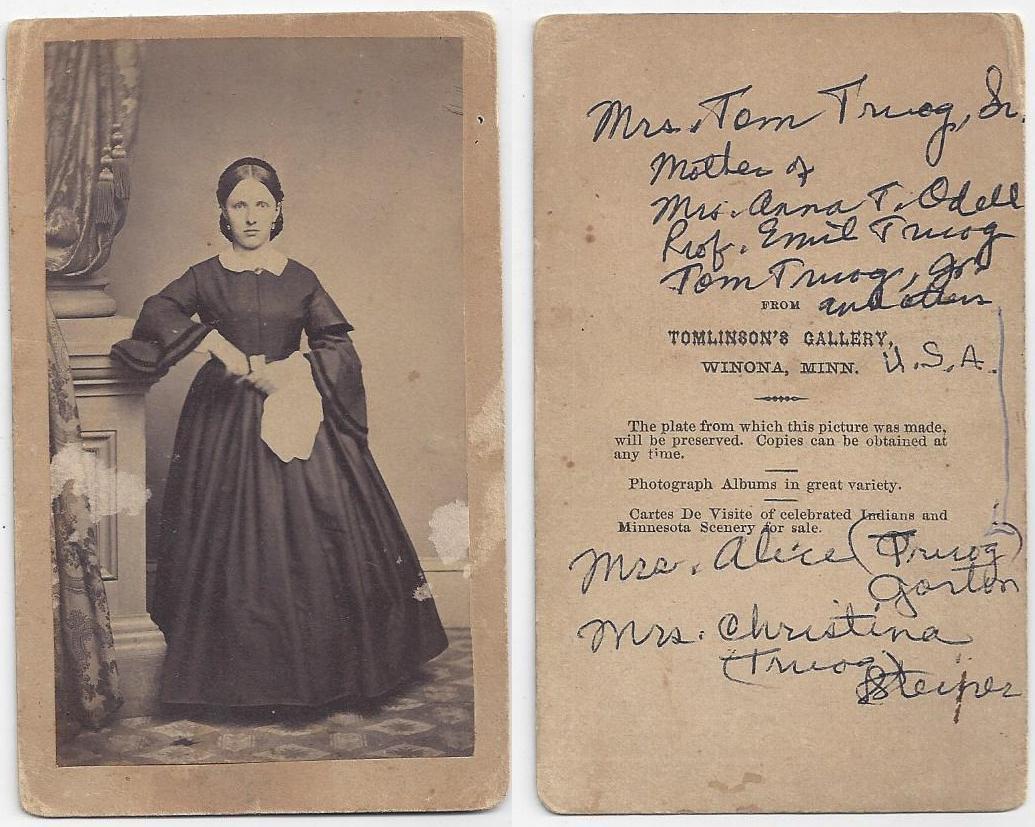 Mrs. Tom Truog, Sr.
Mother of
Mrs. Anna T. Odell
Prof. Emil Truog
Tom Truog, Jr.
and others
FROM
TOMLINSON'S GALLERY,
WINONA, MINN. U.S.A.
The plate from which this picture was made,
will be preserved. Copies can be obtained at
any time.
Photograph Albums in great variety.
Cartes De Visite of celebrated Indians and
Minnesota Scenery for sale.
Mrs. Alice (Truog)
Gorton
Mrs. Christina
(Truog)
Steiner